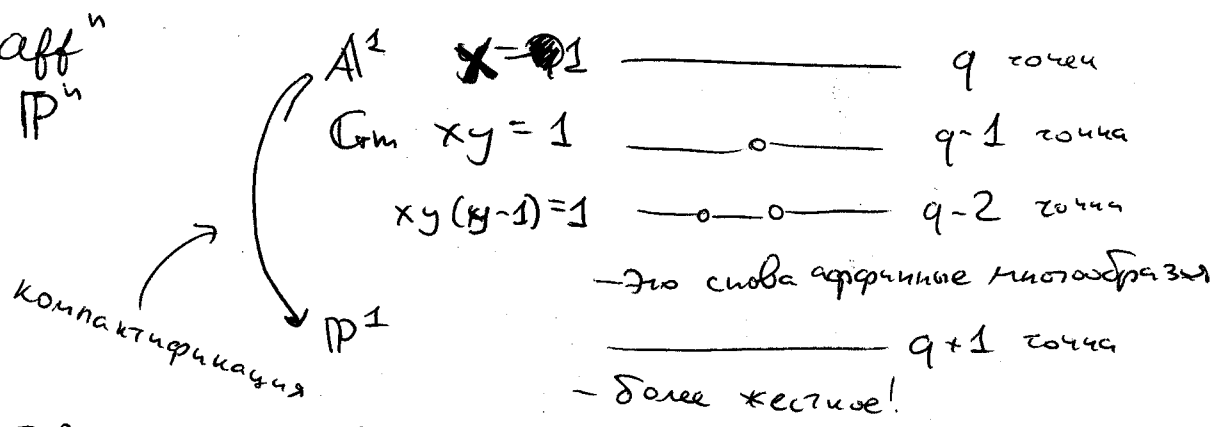 aff^n
P^n
A^1 x = 1 q точек
Gm xy = 1 q-1 точка
xy(xy-1)=1 q-2 точки
– Это снова аффинные многообразия
компактификация
P^1 q+1 точка
– более жесткое!